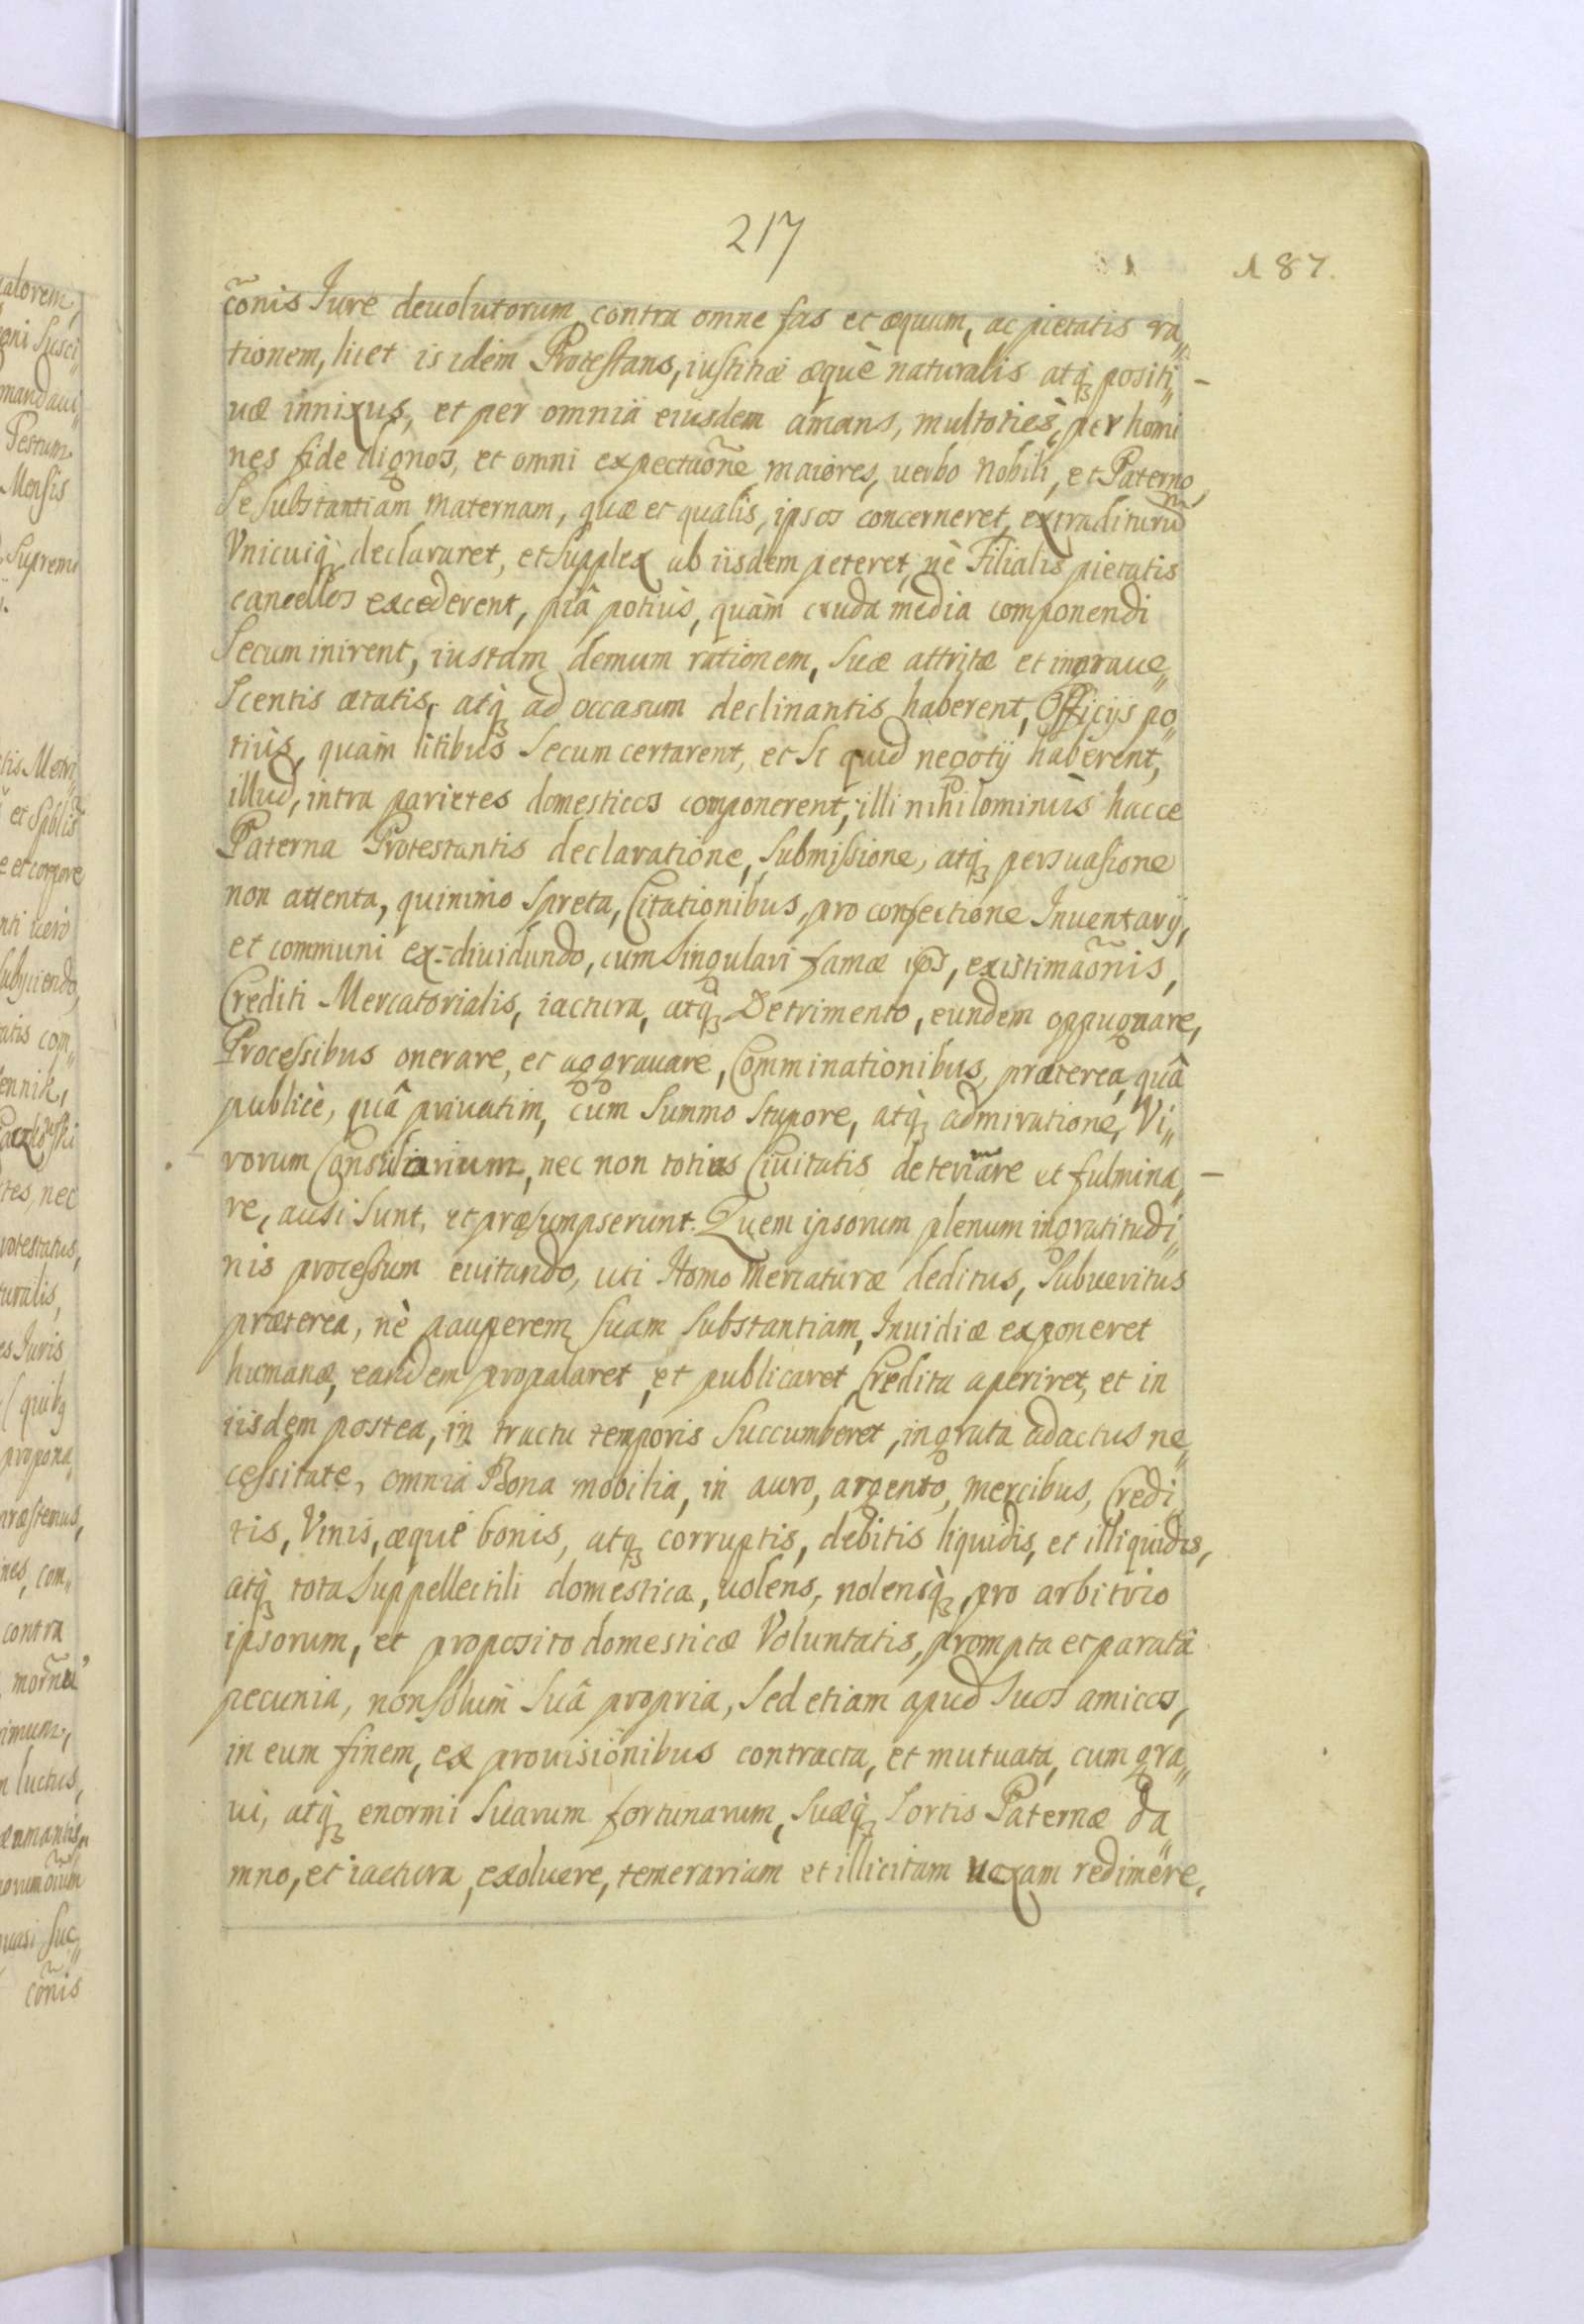 217
187.
c̃onis Iure deuolutorum, contra omne fas et æquum, ac pietatis ra„
tionem, licet is idem Protestans, iustitiæ æquè naturalis atq́ȝ positi„ –
uæ innixus, et per omnia eiusdem amans, multoties, per homi
nes fide dignos, et omni expectaõne maiores, uerbo Nobili, et Paterno,
Se Substantiam Maternam, quæ et qualis, ipsos concerneret, extraditurũ
Vnicuiq́ȝ declararet, et Supplex ab iisdem peteret, nè Filialis pietatis
cancellos excederent, piâ potiùs, quàm cruda media componendi
Secum inirent, iustam demum rationem, Suæ attritæ et ingraue„
Scentis ætatis, atq́ȝ ad occasum declinantis haberent, Officijs po„
tiùs, quàm litibus Secum certarent, et Si quid negotij haberent,
illud, intra parietes domesticos componerent, illi nihilominùs hacce
Paterna Protestantis declaratione, Submissione, atq́ȝ persuasione
non attenta, quinimo Spreta, Citationibus, pro confectione Inuentarij,
et communi ex=diuidundo, cum Singulari famæ ip̃s, existimaõnis,
Crediti Mercatorialis, iactura, atq́ȝ Detrimento, eundem oppugnare,
Processibus onerare, et aggrauare, Comminationibus, præterea, quâ
publicè, quâ priuatim, cum Summo Stupore, atq́ȝ admiratione, Vi„
rorum Consularium, nec non totius Ciuitatis detonare et fulmina„ –
re, ausi Sunt, et præsumpserunt. Quem ipsorum plenum ingratitudi„
nis processum euitando, uti Homo Mercaturæ deditus, Subueritus
præterea, nè pauperem Suam Substantiam, Inuidiæ exponeret
humanæ, eandem propalaret, et publicaret, Credita aperiret, et in
iisdem postea, in tractu temporis Succumberet, ingrata adactus ne„
cessitate, omnia Bona mobilia, in auro, argento, mercibus, Credi„
tis, Vinis, æquè bonis, atq́ȝ corruptis, debitis liquidis, et illiquidis,
atq́ȝ tota Suppellectili domestica, uolens, nolensq́ȝ, pro arbitrio
ipsorum, et proposito domesticæ Voluntatis, prompta et parata
pecunia, non Solum Suâ propria, Sed etiam apud Suos amicos,
in eum finem, ex prouisionibus contracta, et mutuata, cum gra„
ui, atq́ȝ enormi Suarum fortunarum, Suæq́ȝ Sortis Paternæ da„
mno, et iactura, exoluere, temerariam et illicitam uexam redimere,